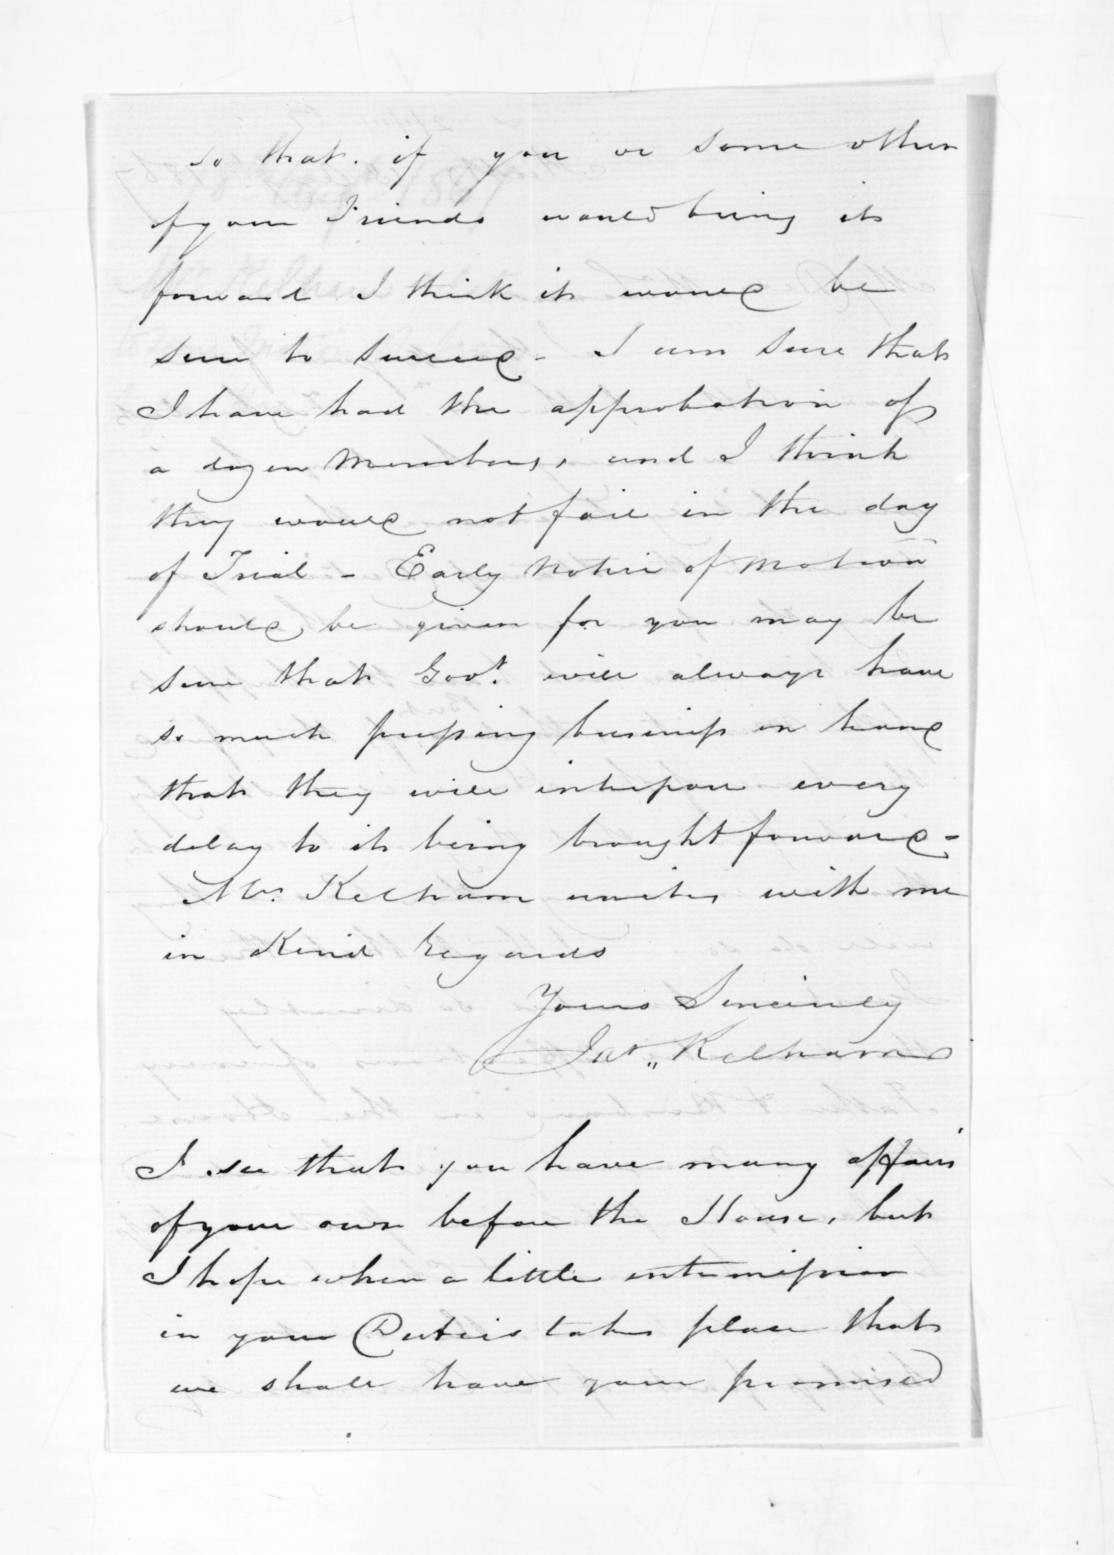 so that if you or some other
of your Friends would bring it
forward I think it would be
sure to succeed - I am sure that
I have had the approbation of
a dozen Members, and I think
they would not fail in the day
of Trial - Early Notice of Motion
should be given for you may be
sure that Govt. will always have
so much pressing business in hand
that they will interpose every
delay to its being brought forward -
Mrs. Kelham unites with me
in Kind Regards
Yours Sincerely
Jas. Kelham
I see that you have many affairs
of your own before the House, but
I hope when a little intermission
in your Duties takes place that
we shall have your promised